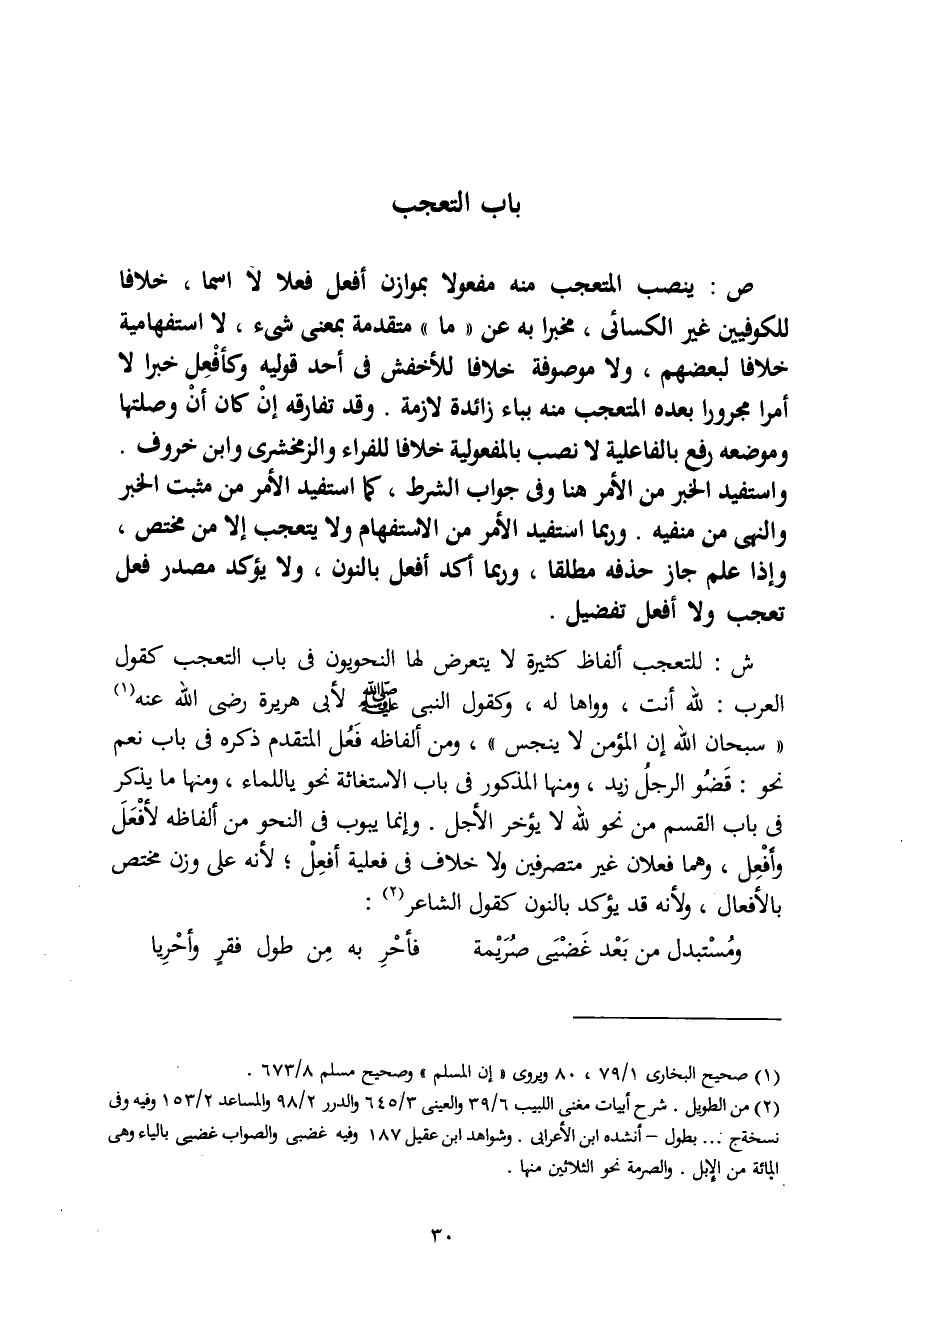 باب التعجب
ص : ينصب المتعجب منه مفعولا بموازن أفعل فعلا لا اسما ، خلافا
للكوفيين غير الكسائى ، مخبرا به عن « ما » متقدمة بمعنى شىء ، لا استفهامية
خلافا لبعضهم ، ولا موصوفة خلافا للأخفش فى أحد قوليه وكأفْعِل خبرا لا
أمرا مجرورا بعده المتعجب منه بباء زائدة لازمة . وقد تفارقه إنْ كان أنْ وصلتها
وموضعه رفع بالفاعلية لا نصب بالمفعولية خلافا للفراء والزمخشرى وابن خروف .
واستفيد الخبر من الأمر هنا وفى جواب الشرط ، كما استفيد الأمر من مثبت الخبر
والنهى من منفيه . وربما استفيد الأمر من الاستفهام ولا يتعجب إلا من مختص ،
وإذا علم جاز حذفه مطلقا ، وربما أكد أفعل بالنون ، ولا يؤكد مصدر فعل
تعجب ولا أفعل تفضيل .
ش : للتعجب ألفاظ كثيرة لا يتعرض لها النحويون فى باب التعجب كقول
العرب : لله أنت ، وواها له ، وكقول النبى ﷺ لأبى هريرة رضى الله عنه(١)
« سبحان الله إن المؤمن لا ينجس » ، ومن ألفاظه فَعُل المتقدم ذكره فى باب نعم
نحو : قَضُو الرجلُ زيد ، ومنها المذكور فى باب الاستغاثة نحو ياللماء ، ومنها ما يذكر
فى باب القسم من نحو لله لا يؤخر الأجل . وإنما يبوب فى النحو من ألفاظه لأفْعَلَ
وأفْعِل ، وهما فعلان غير متصرفين ولا خلاف فى فعلية أفعِلْ ؛ لأنه على وزن مختص
بالأفعال ، ولأنه قد يؤكد بالنون كقول الشاعر(٢) :
ومُسْتبدل من بَعْد غَضْيَى صُرَيْمة فأحْرِ به مِن طول فقرٍ وأحْرِيا
(١) صحيح البخارى ٧٩/١ ، ٨٠ ويروى « إن المسلم » وصحيح مسلم ٦٧٣/٨ .
(٢) من الطويل . شرح أبيات مغنى اللبيب ٣٩/٦ والعينى ٦٤٥/٣ والدرر ٩٨/٢ والمساعد ١٥٣/٢ وفيه وفى
نسختج ... بطول – أنشده ابن الأعرابى . وشواهد ابن عقيل ١٨٧ وفيه غضبى والصواب غضيى بالياء وهى
المائة من الإبل . والصرمة نحو الثلاثين منها .
٣٠